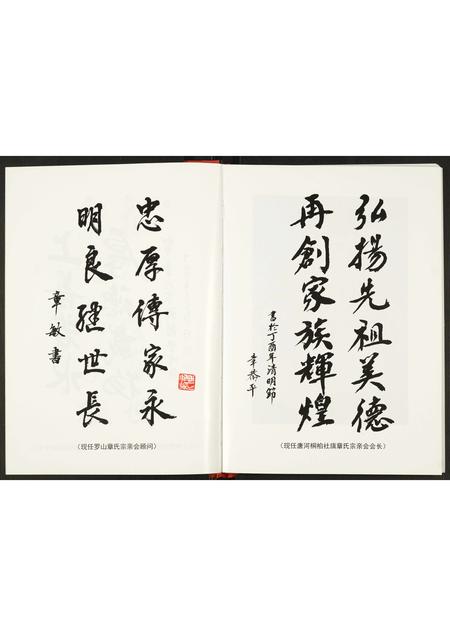 弘揚先祖美德
再創家族輝煌
書於丁酉年清明節
章恭平
（现任唐河桐柏社旗章氏宗亲会会长）
忠厚傳家永
明良繼世長
章敏書
（现任罗山章氏宗亲会顾问）